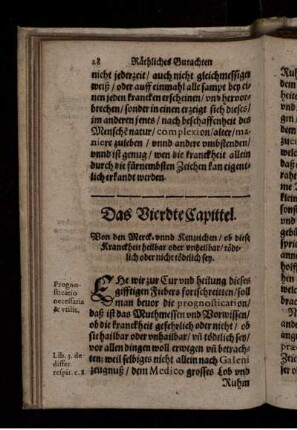 28 Räthliches Gutachten
nicht jederzeit / auch nicht gleichmessiger
weiß / oder auff einmahl alle sampt bey ei-
nem jeden krancken erscheinen / vnd hervor-
brechen / sonder in einen erzeigt sich dieses /
im anderen jenes / nach beschaffenheit des
Menschẽ natur / complexion / alter / ma-
niere zuleben / vnnd andere vmbstenden /
vnnd ist genug / wen die kranckheit allein
durch die fürnembsten Zeichen kan eigent-
lich erkandt werden.
Das Vierdte Capittel.
Von den Merck- vnnd Kenzeichen / ob diese
Kranckheit heilbar oder vnheilbar / tödt-
lich oder nicht tödtlich sey.
EHe wir zur Cur vnd heilung dieses
gifftigen Fiebers fortschreitten / soll
man bevor die prognostication /
daß ist das Muthmessen vnd Vorwissen /
ob die kranckheit gefehrlich oder nicht / ob
sie hailbar oder vnhailbar / vñ tödtlich sey /
vor allen dingen woll erwegen vñ betrach-
ten: weil selbiges nicht allein nach Galeni
zeugnuß / dem Medico grosses Lob vnd
Ruhm
Progno-
sticatio
necessaria
& vtilis.
Lib. 3. de
differ.
respir. c. 8